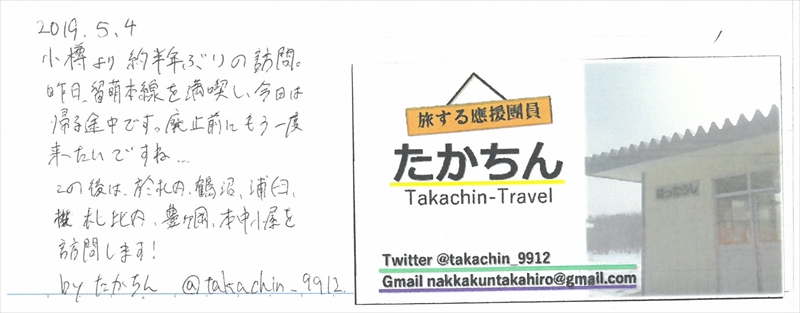 2019.5.4
小樽より約半年ぶりの訪問。
昨日、留萌本線を満喫し、今日は
帰る途中です。廃止前にもう一度
来たいですね…
この後は、於札内、鶴沼、浦臼、
札比内、豊ヶ岡、本中小屋を
訪問します!
by たかちん @takachin_9912.
旅する應援團員
たかちん
Takachin-Travel
Twitter @takachin_9912
Gmail nakkakuntakahiro@gmail.com